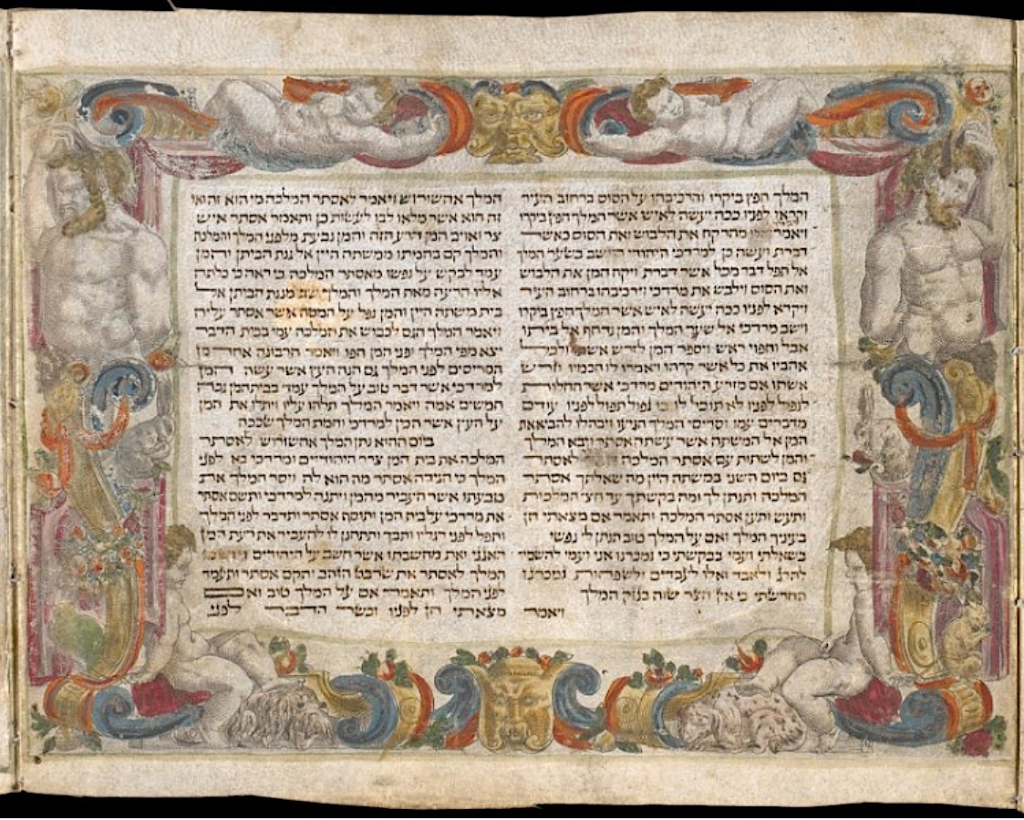 המלך חפץ ביקרו והרכיבהו על הסוס ברחוב העיר
וקראו לפניו ככה יעשה לאיש אשר המלך חפץ ביקרו
ויאמר מהר קח את הלבוש ואת הסוס כאשר
דברת ועשה כן למרדכי היהודי היושב בשער המלך
אל תפל דבר מכל אשר דברת ויקח המן את הלבוש
ואת הסוס וילבש את מרדכי וירכיבהו ברחוב העיר
ויקרא לפניו ככה יעשה לאיש אשר המלך חפץ ביקרו
וישב מרדכי אל שער המלך והמן נדחף אל ביתו
אבל וחפוי ראש ויספר המן לזרש אשתו ולכל
אהביו את כל אשר קרהו ויאמרו לו חכמיו וזרש
אשתו אם מזרע היהודים מרדכי אשר החלות
לנפל לפניו לא תוכל לו כי נפול תפול לפניו עודם
מדברים עמו וסריסי המלך הגיעו ויבהלו להביא את
המן אל המשתה אשר עשתה אסתר ויבא המלך
והמן לשתות עם אסתר המלכה לאסתר
גם ביום השני במשתה היין מה שאלתך אסתר
המלכה ותנתן לך ומה בקשתך עד חצי המלכות
ותעש ותען אסתר המלכה ותאמר אם מצאתי חן
בעיניך המלך ואם על המלך טוב תנתן לי נפשי
בשאלתי ועמי בבקשתי כי נמכרנו אני ועמי להשמיד
להרג ולאבד ואלו לעבדים ולשפחות נמכרנו
החרשתי כי אין הצר שוה בנזק המלך
ויאמר
המלך אחשורוש ויאמר לאסתר המלכה מי הוא זה ואי
זה הוא אשר מלאו לבו לעשות כן ותאמר אסתר איש
צר ואויב המן הרע הזה והמן נבעת מלפני המלך והמלכה
והמלך קם בחמתו ממשתה היין אל גנת הביתן והמן
עמד לבקש על נפשו מאסתר המלכה כי ראה כי כלתה
אליו הרעה מאת המלך והמלך שב מגנת הביתן אל
בית משתה היין והמן נפל על המטה אשר אסתר עליה
ויאמר המלך הגם לכבוש את המלכה עמי בבית הדבר
יצא מפי המלך ופני המן חפו ויאמר חרבונה אחד מן
הסריסים לפני המלך גם הנה העץ אשר עשה המן
למרדכי אשר דבר טוב על המלך עמד בבית המן גבה
חמשים אמה ויאמר המלך תלהו עליו ויתלו את המן
על העץ אשר הכין למרדכי וחמת המלך שככה
ביום ההוא נתן המלך אחשורוש לאסתר
המלכה את בית המן צרר היהודיים ומרדכי בא לפני
המלך כי הגידה אסתר מה הוא לה ויסר המלך את
טבעתו אשר העביר מהמן ויתנה למרדכי ותשם אסתר
את מרדכי על בית המן ותוסף אסתר ותדבר לפני המלך
ותפל לפני רגליו ותבך ותתחנן לו להעביר את רעת המן
האגגי ואת מחשבתו אשר חשב על היהודים ויושט
המלך לאסתר את שרבט הזהב ותקם אסתר ותעמד
לפני המלך ותאמר אם על המלך טוב ואם
מצאתי חן לפניו וכשר הדבר לפני